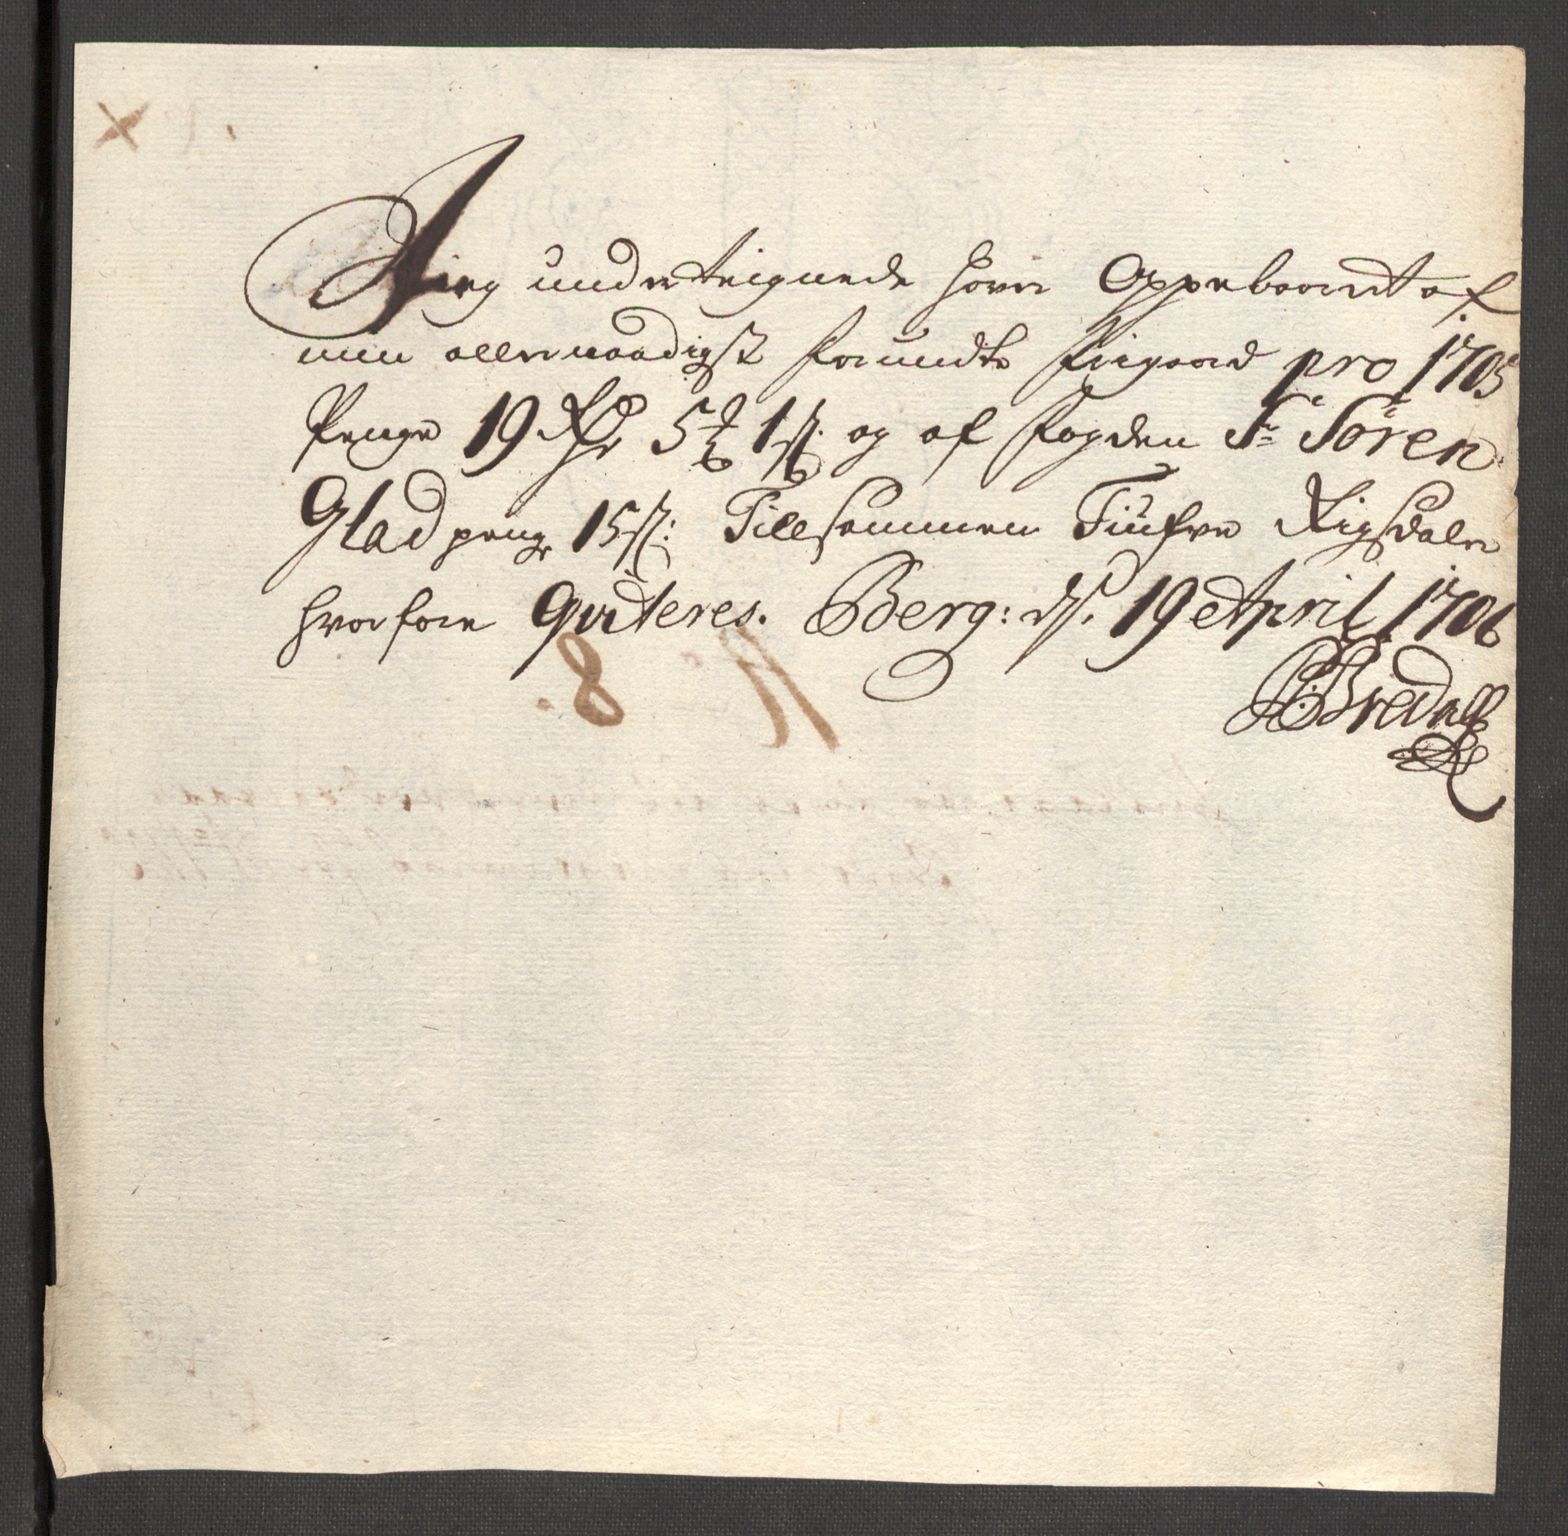 At ieg underteignede haver Oppebaaret af
min allernaadigst forundte Frigaard pro 1705
Penge 19 Rdr 5 ₰ 1 ß: og af fogden Sr: Sören
Glad penge 15 ß: Tillsammen Tiufve Rigsdaler
hvorfore Qviteres. Berg: ds. 19 April 1706
Bredall
N 8.